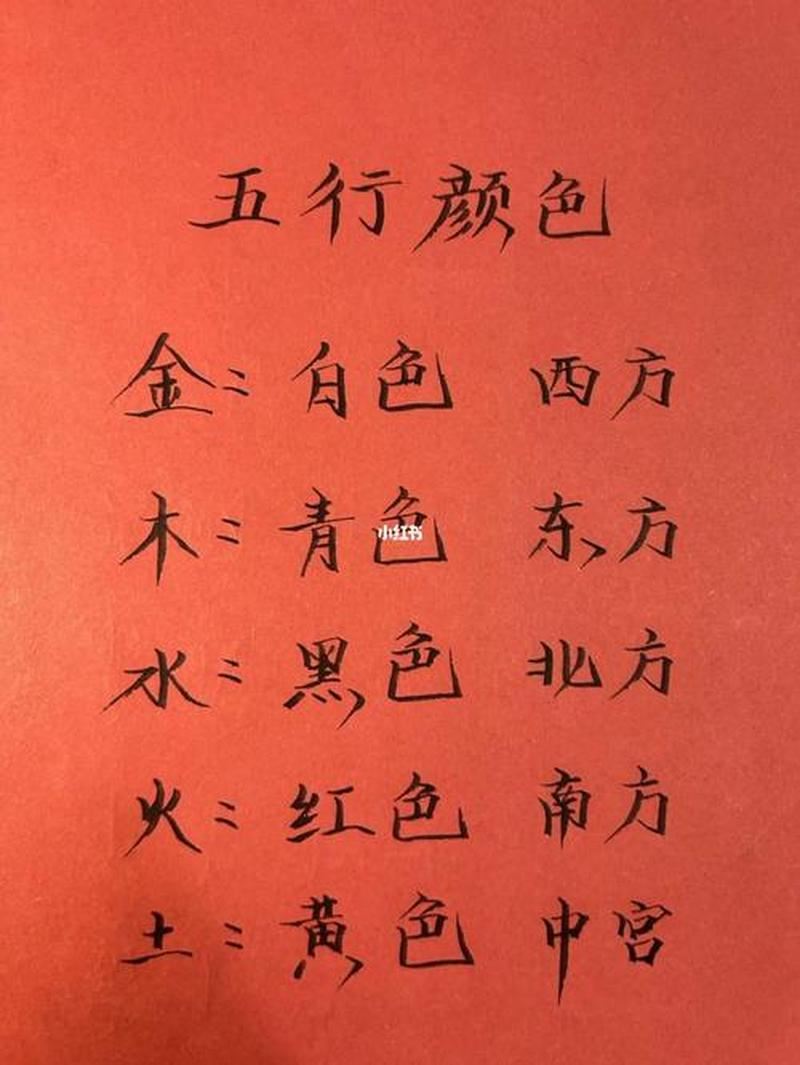 五行颜色
金：白色 西方
木：青色 东方
小红书
水：黑色 北方
火：红色 南方
土：黄色 中宫